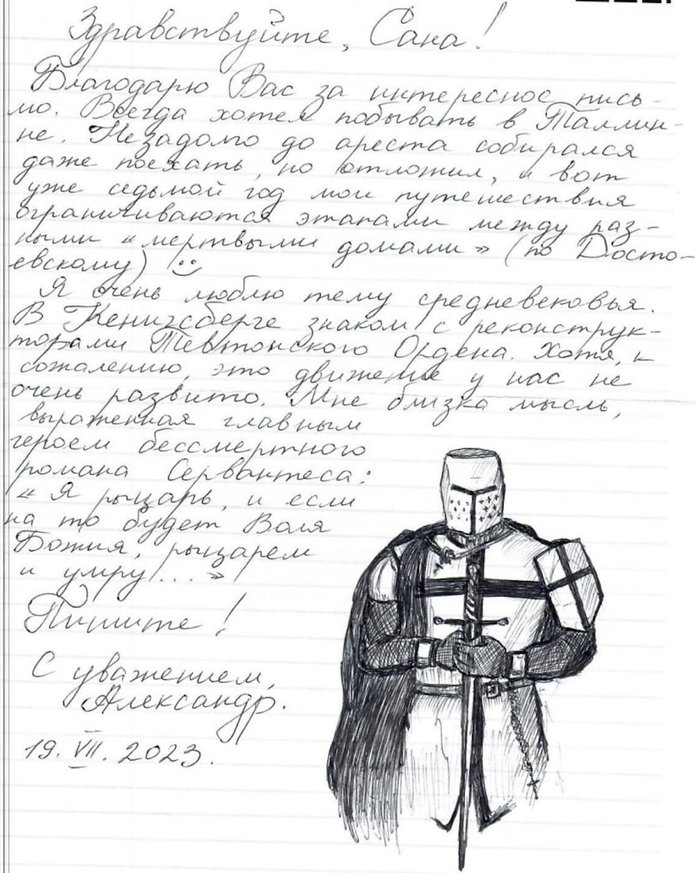 Здравствуйте, Сана!
Благодарю Вас за интересное пись-
мо. Всегда хотел побывать в Таллин-
не. Незадолго до ареста собирался
даже поехать, но отложил, и вот
уже седьмой год мои путешествия
ограничиваются этапами между раз-
ными «мертвыми домами» (по Досто-
евскому) :)
Я очень люблю тему средневековья.
В Кенигсберге знаком с реконструк-
торами Тевтонского Ордена. Хотя, к
сожалению, это движение у нас не
очень развито. Мне близка мысль,
выраженная главным
героем бессмертного
романа Сервантеса:
«Я рыцарь, и если
на то будет Воля
Божия, рыцарем
и умру...»
Пишите!
С уважением,
Александр.
19. VII. 2023.